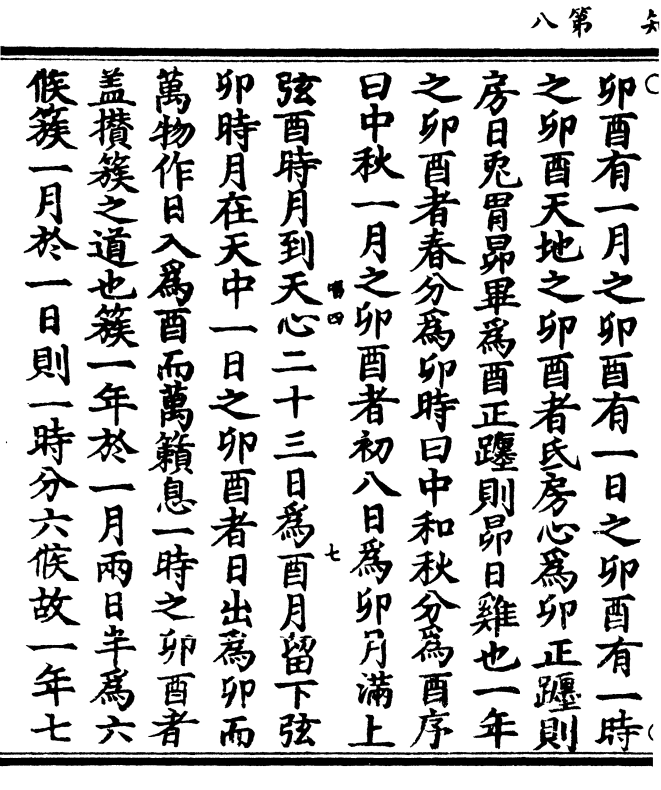 第八
卯酉有一月之卯酉有一日之卯酉有一時
之卯酉天地之卯酉者氐房心爲卯正躔則
房日兎胃昴畢爲酉正躔則昴日雞也一年
之卯酉者春分爲卯時曰中和秋分爲酉序
曰中秋一月之卯酉者初八日爲卯月滿上
四 七
弦酉時月到天心二十三日爲酉月留下弦
卯時月在天中一日之卯酉者日出爲卯而
萬物作日入爲酉而萬籟息一時之卯酉者
盖攢簇之道也簇一年於一月兩日半爲六
候簇一月於一日則一時分六候故一年七